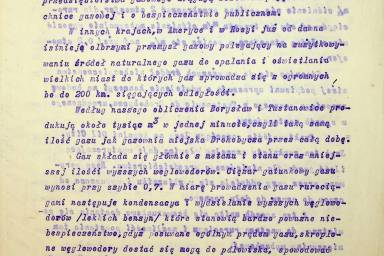 chnice gazowej i o bezpieczeństwie publicznem.
W innych krajach, w Ameryce i w Rosyi już od dawna
istnieje olbrzymi przemysł gazowy polegający na zużytkowy-
waniu źródeł naturalnego gazu do opalania i oświetlania
wielkich miast do których gaz sprowadza się z ogromnych
bo do 200 km. sięgających odległości.
Według naszego obliczenia Borysław i Tustanowice pro-
dukują około tysiąc m³ w jednej minucie, czyli taką samą
ilość gazu jak gazownia miejska Drohobycza przez całą dobę.
Gaz składa się głównie z metanu i etanu oraz mniej-
szej ilości wyższych węglewodorów. Ciężar gatunkowy gazu
wynosi przy szybie 0,7. W miarę prowadzenia gazu rurocią-
gami następuje kondenzacya i wydzielanie wyższych węglewo-
dorów /lekkich benzyn/ które stanowią bardzo poważne nie-
bezpieczeństwo, gdyż posuwane ogólnym prądem gazu, skroplo-
ne węglewodory dostać się mogą do paleniska, spowodować